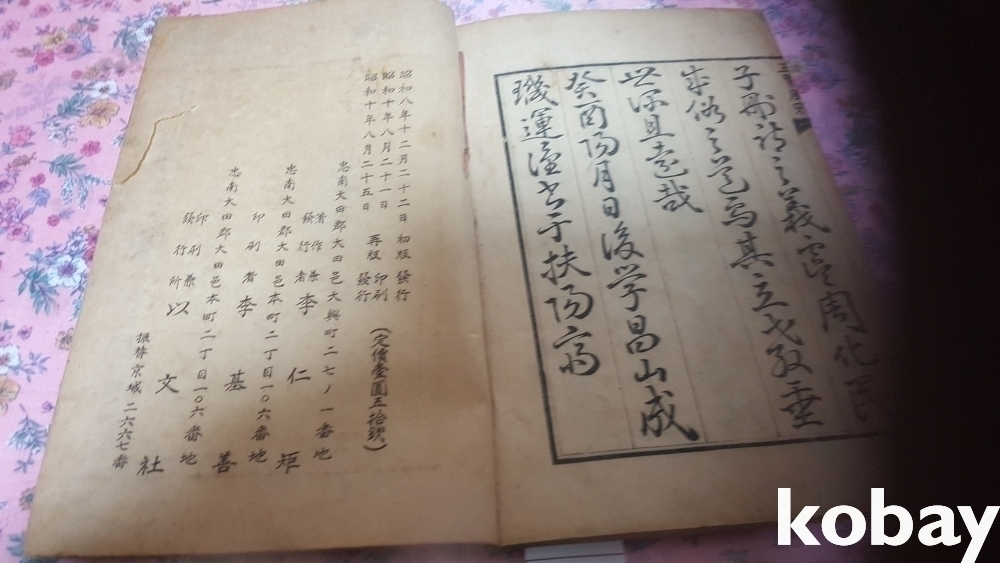 子刪詩之義寔周化民
成俗之道焉其立教垂
世深且遠哉
癸酉陽月日後学昌山成
璣運謹書于扶陽齋
昭和八年十二月二十二日 初版 發行
昭和十年八月二十一日 印刷
昭和十年八月二十五日 再版 發行
(定價壹圓五拾錢)
忠南大田郡大田邑大興町二七ノ一番地
著作兼發行者 李仁矩
忠南大田郡大田邑本町二丁目一〇六番地
印刷者 李基善
忠南大田郡大田邑本町二丁目一〇六番地
印刷兼發行所 以文社
振替京城二六六七番
kobay